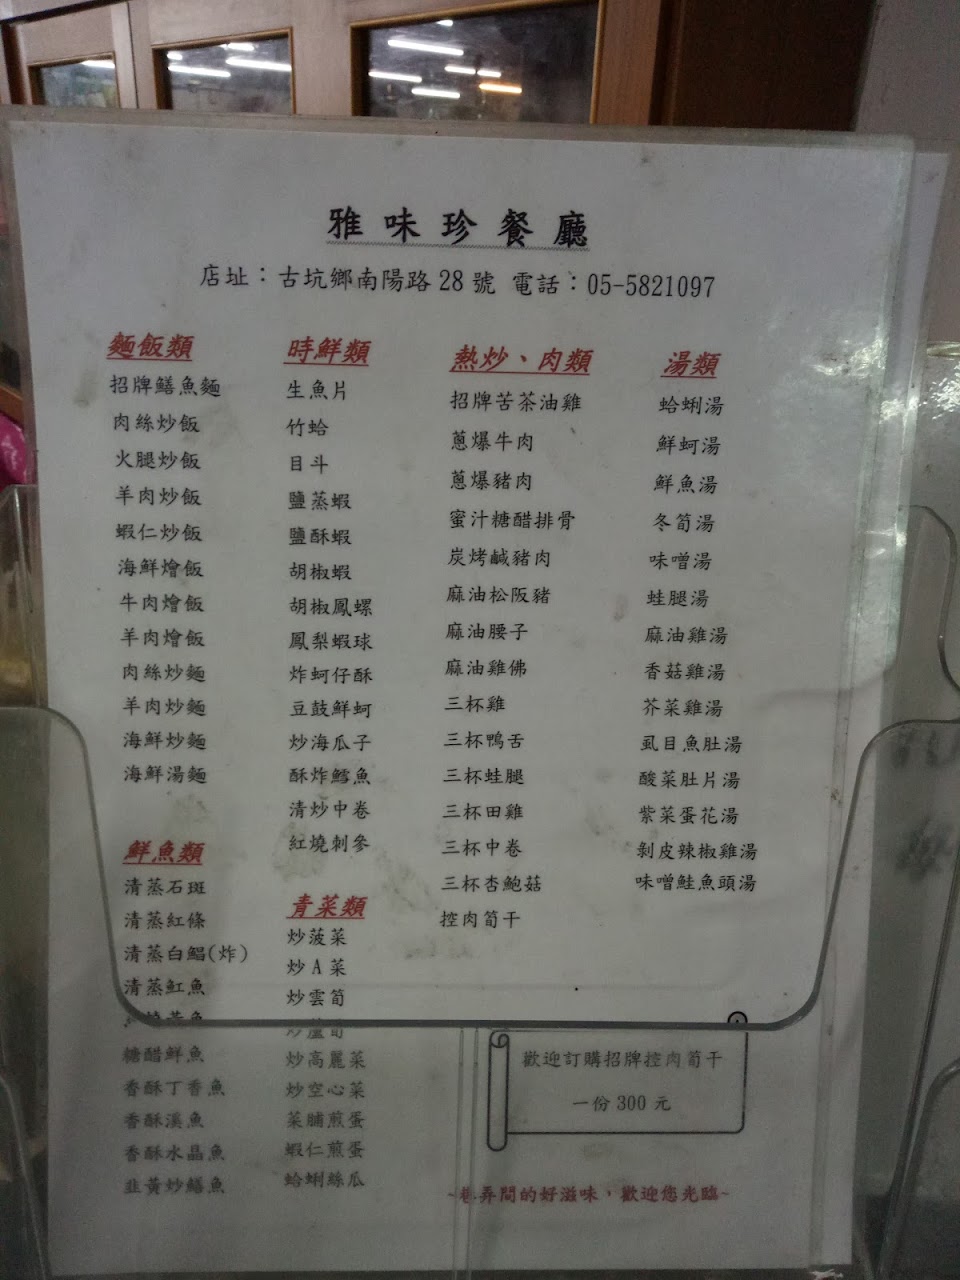 雅味珍餐廳
店址：古坑鄉南陽路28號 電話：05-5821097
麵飯類
招牌鱔魚麵
肉絲炒飯
火腿炒飯
羊肉炒飯
蝦仁炒飯
海鮮燴飯
牛肉燴飯
羊肉燴飯
肉絲炒麵
羊肉炒麵
海鮮炒麵
海鮮湯麵
鮮魚類
清蒸石斑
清蒸紅條
清蒸白鯧(炸)
清蒸魟魚
糖醋鮮魚
香酥丁香魚
香酥溪魚
香酥水晶魚
韭黃炒鱔魚
時鮮類
生魚片
竹蛤
目斗
鹽蒸蝦
鹽酥蝦
胡椒蝦
胡椒鳳螺
鳳梨蝦球
炸蚵仔酥
豆鼓鮮蚵
炒海瓜子
酥炸鱈魚
清炒中卷
紅燒刺參
青菜類
炒菠菜
炒A菜
炒雲筍
炒蘆筍
炒高麗菜
炒空心菜
菜脯煎蛋
蝦仁煎蛋
蛤蜊絲瓜
熱炒、肉類
招牌苦茶油雞
蔥爆牛肉
蔥爆豬肉
蜜汁糖醋排骨
炭烤鹹豬肉
麻油松阪豬
麻油腰子
麻油雞佛
三杯雞
三杯鴨舌
三杯蛙腿
三杯田雞
三杯中卷
三杯杏鮑菇
控肉筍干
湯類
蛤蜊湯
鮮蚵湯
鮮魚湯
冬筍湯
味噌湯
蛙腿湯
麻油雞湯
香菇雞湯
芥菜雞湯
虱目魚肚湯
酸菜肚片湯
紫菜蛋花湯
剝皮辣椒雞湯
味噌鮭魚頭湯
歡迎訂購招牌控肉筍干
一份300元
~巷弄間的好滋味，歡迎您光臨~